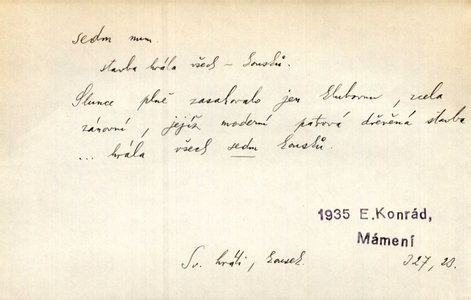 sedm num.
stavba hrála všech – kousků.
Slunce plně zasahovalo jen Klubovnu, zcela
zánovní, jejíž moderní patrová dřevěná stavba
... hrála všech sedm kousků.
1935 E.Konrád,
Mámení
Sv. hráti, kousek. 227, 20.